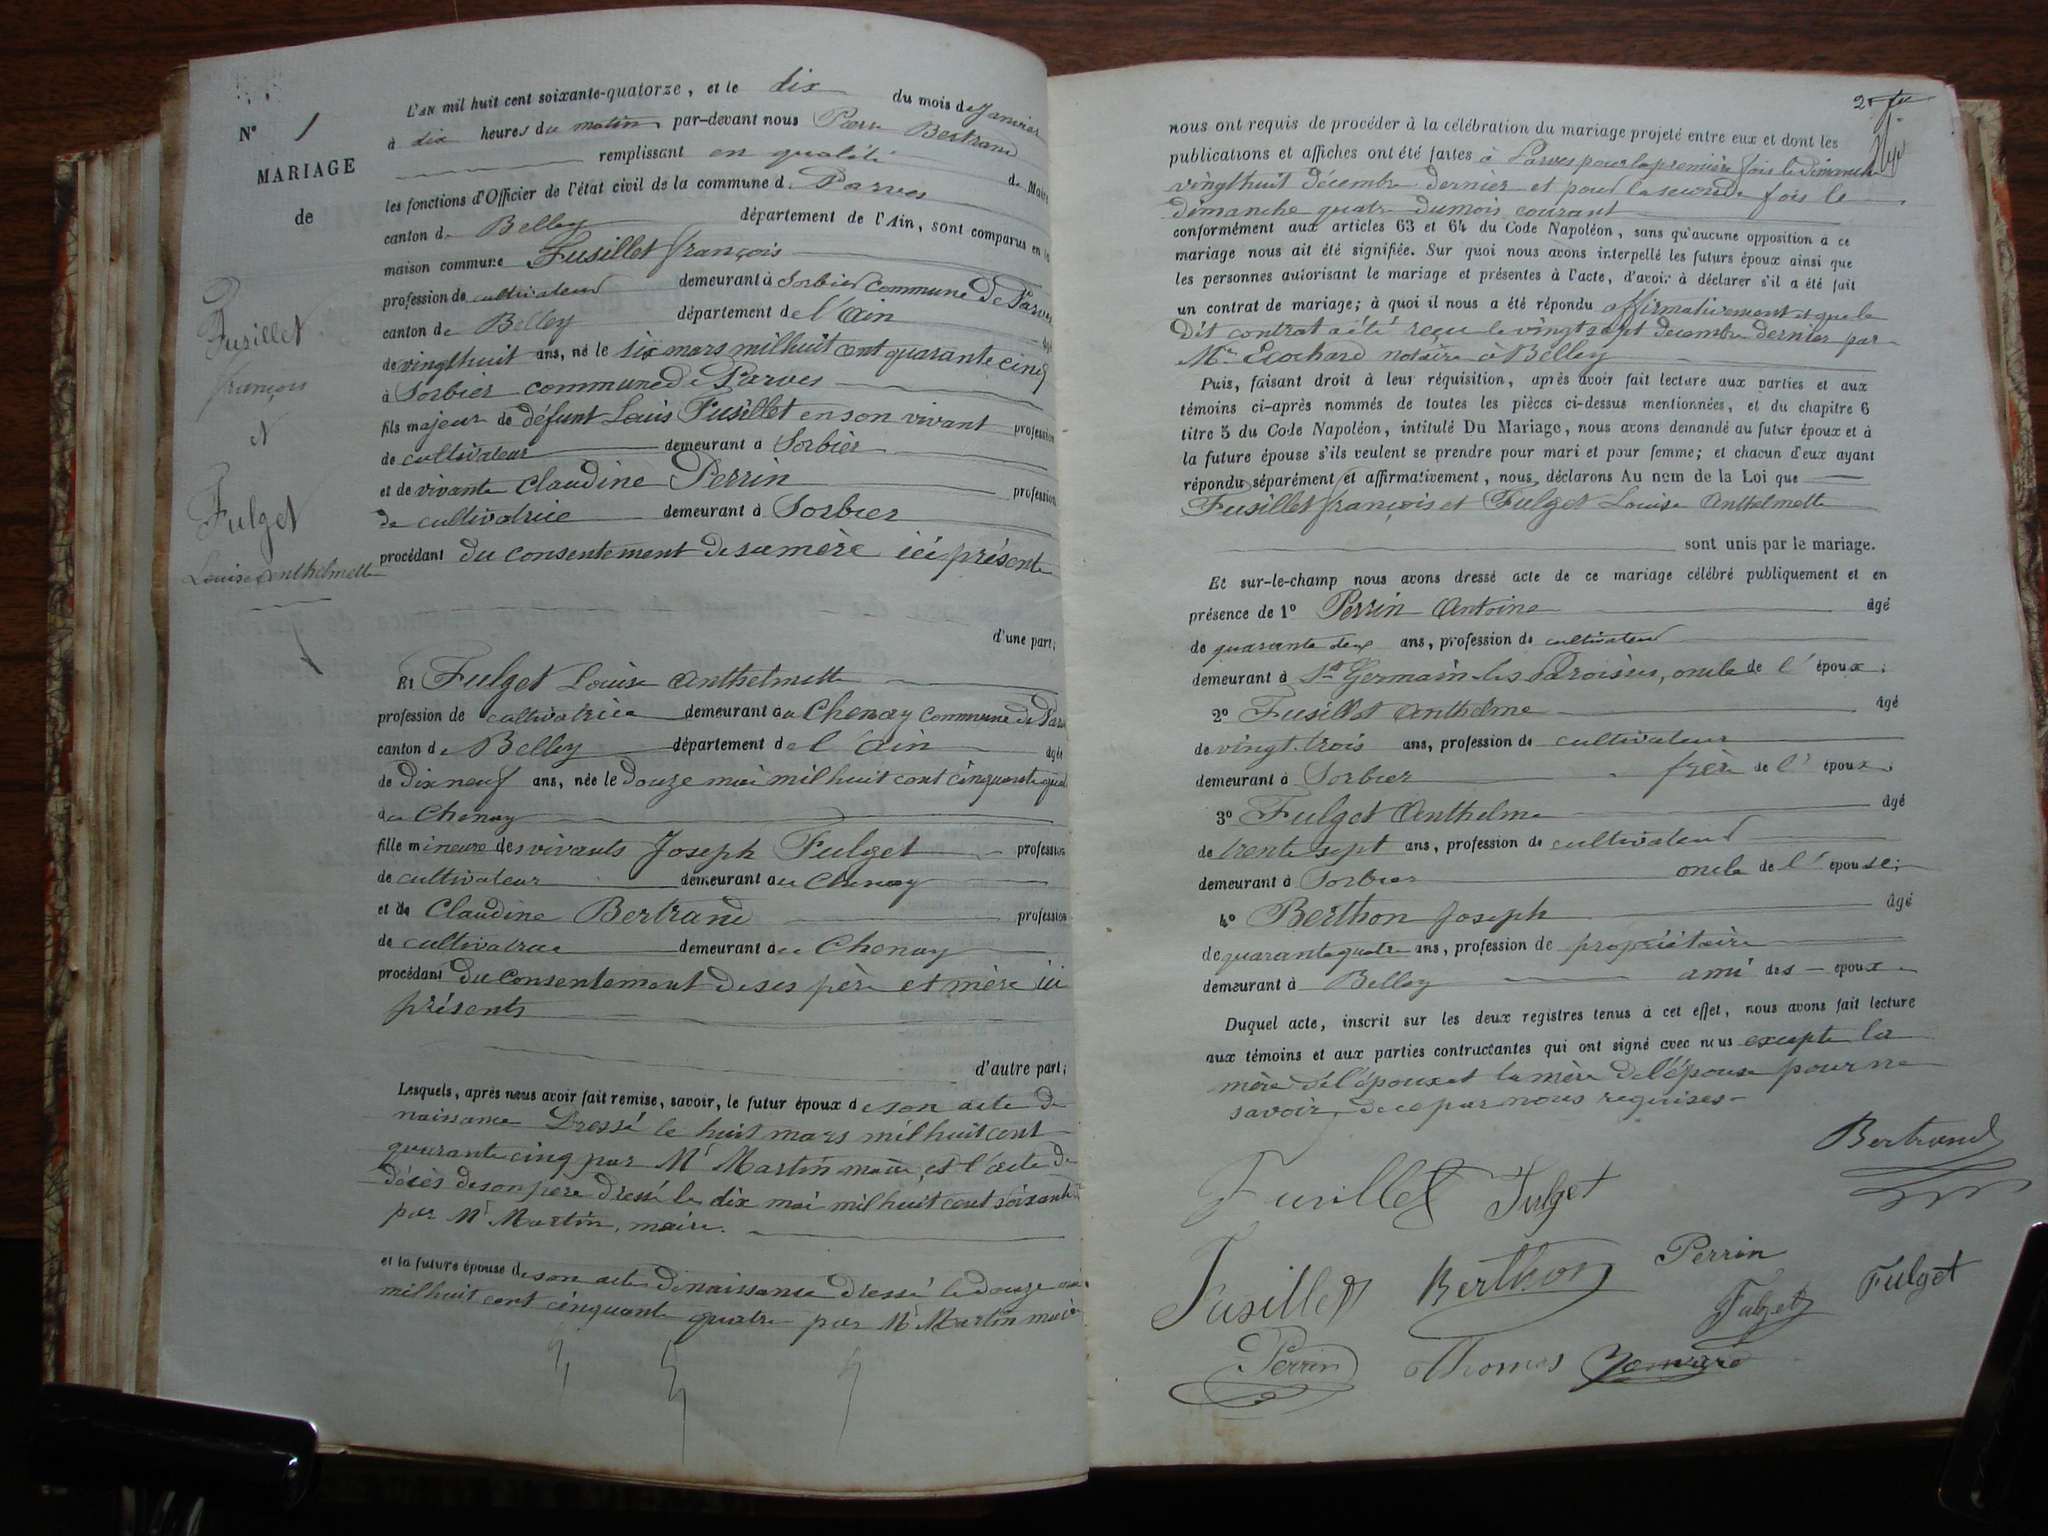 N° 1
MARIAGE
de
Fusillet
françois
et
Fulget
Louise Anthelmette
L'an mil huit cent soixante-quatorze, et le dix du mois de Janvier
à dix heures du matin par-devant nous Pierre Bertrand
remplissant en qualité de Maire
les fonctions d'Officier de l'état civil de la commune de Parves
canton de Belley département de l'Ain, sont comparus en la
maison commune Fusillet françois
profession de cultivateur demeurant à Sorbier commune de Parves
canton de Belley département de l'Ain âgé
de vingt huit ans, né le six mars mil huit cent quarante cinq
à Sorbier commune de Parves
fils majeur de défunt Louis Fusillet en son vivant profession
de cultivateur demeurant à Sorbier
et de vivante Claudine Perrin profession
de cultivatrice demeurant à Sorbier
procédant du consentement de sa mère ici présente
d'une part;
Et Fulget Louise Anthelmette
profession de cultivatrice demeurant au Chenay commune de Parves
canton de Belley département de l'Ain âgée
de dix neuf ans, née le douze mai mil huit cent cinquante quatre
au Chenay
fille mineure des vivants Joseph Fulget profession
de cultivateur demeurant au Chenay
et de Claudine Bertrand profession
de cultivatrice demeurant au Chenay
procédant du consentement de ses père et mère ici
présents
d'autre part;
Lesquels, après nous avoir fait remise, savoir, le futur époux de son acte de
naissance Dressé le huit mars mil huit cent
quarante cinq par Mr Martin maire, et l'acte de
décès de son père dressé le dix mai mil huit cent soixante
par Mr Martin, maire.
et la future épouse de son acte de naissance dressé le douze mai
mil huit cent cinquante quatre par Mr Martin maire
2
nous ont requis de procéder à la célébration du mariage projeté entre eux et dont les
publications et affiches ont été faites à Parves pour la première fois le dimanche
vingt huit décembre dernier et pour la seconde fois le
dimanche quatre du mois courant
conformément aux articles 63 et 64 du Code Napoléon, sans qu'aucune opposition à ce
mariage nous ait été signifiée. Sur quoi nous avons interpellé les futurs époux ainsi que
les personnes autorisant le mariage et présentes à l'acte, d'avoir à déclarer s'il a été fait
un contrat de mariage; à quoi il nous a été répondu affirmativement et que le
Dit contrat a été reçu le vingt sept decembre dernier par
Me Ecochard notaire à Belley
Puis, faisant droit à leur réquisition, après avoir fait lecture aux parties et aux
témoins ci-après nommés de toutes les pièces ci-dessus mentionnées, et du chapitre 6
titre 5 du Code Napoléon, intitulé Du Mariage, nous avons demandé au futur époux et à
la future épouse s'ils veulent se prendre pour mari et pour femme; et chacun d'eux ayant
répondu séparément et affirmativement, nous déclarons Au nom de la Loi que
Fusillet françois et Fulget Louise Anthelmette
sont unis par le mariage.
Et sur-le-champ nous avons dressé acte de ce mariage célébré publiquement et en
présence de 1° Perrin Antoine âgé
de quarante deux ans, profession de cultivateur
demeurant à St Germain les Paroisses, oncle de l'époux;
2° Fusillet Anthelme âgé
de vingt-trois ans, profession de cultivateur
demeurant à Sorbier frère de l'époux;
3° Fulget Anthelme âgé
de trente sept ans, profession de cultivateur
demeurant à Sorbier oncle de l'épouse;
4° Berthon Joseph âgé
de quarante quatre ans, profession de propriétaire
demeurant à Belley ami des époux
Duquel acte, inscrit sur les deux registres tenus à cet effet, nous avons fait lecture
aux témoins et aux parties contractantes qui ont signé avec nous excepté la
mère de l'époux et la mère de l'épouse pour ne
savoir, de ce par nous requises
Bertrand
Fusillet Fulget
Perrin
Fusillet Berthon Fulget Fulget
Perrin Thomas